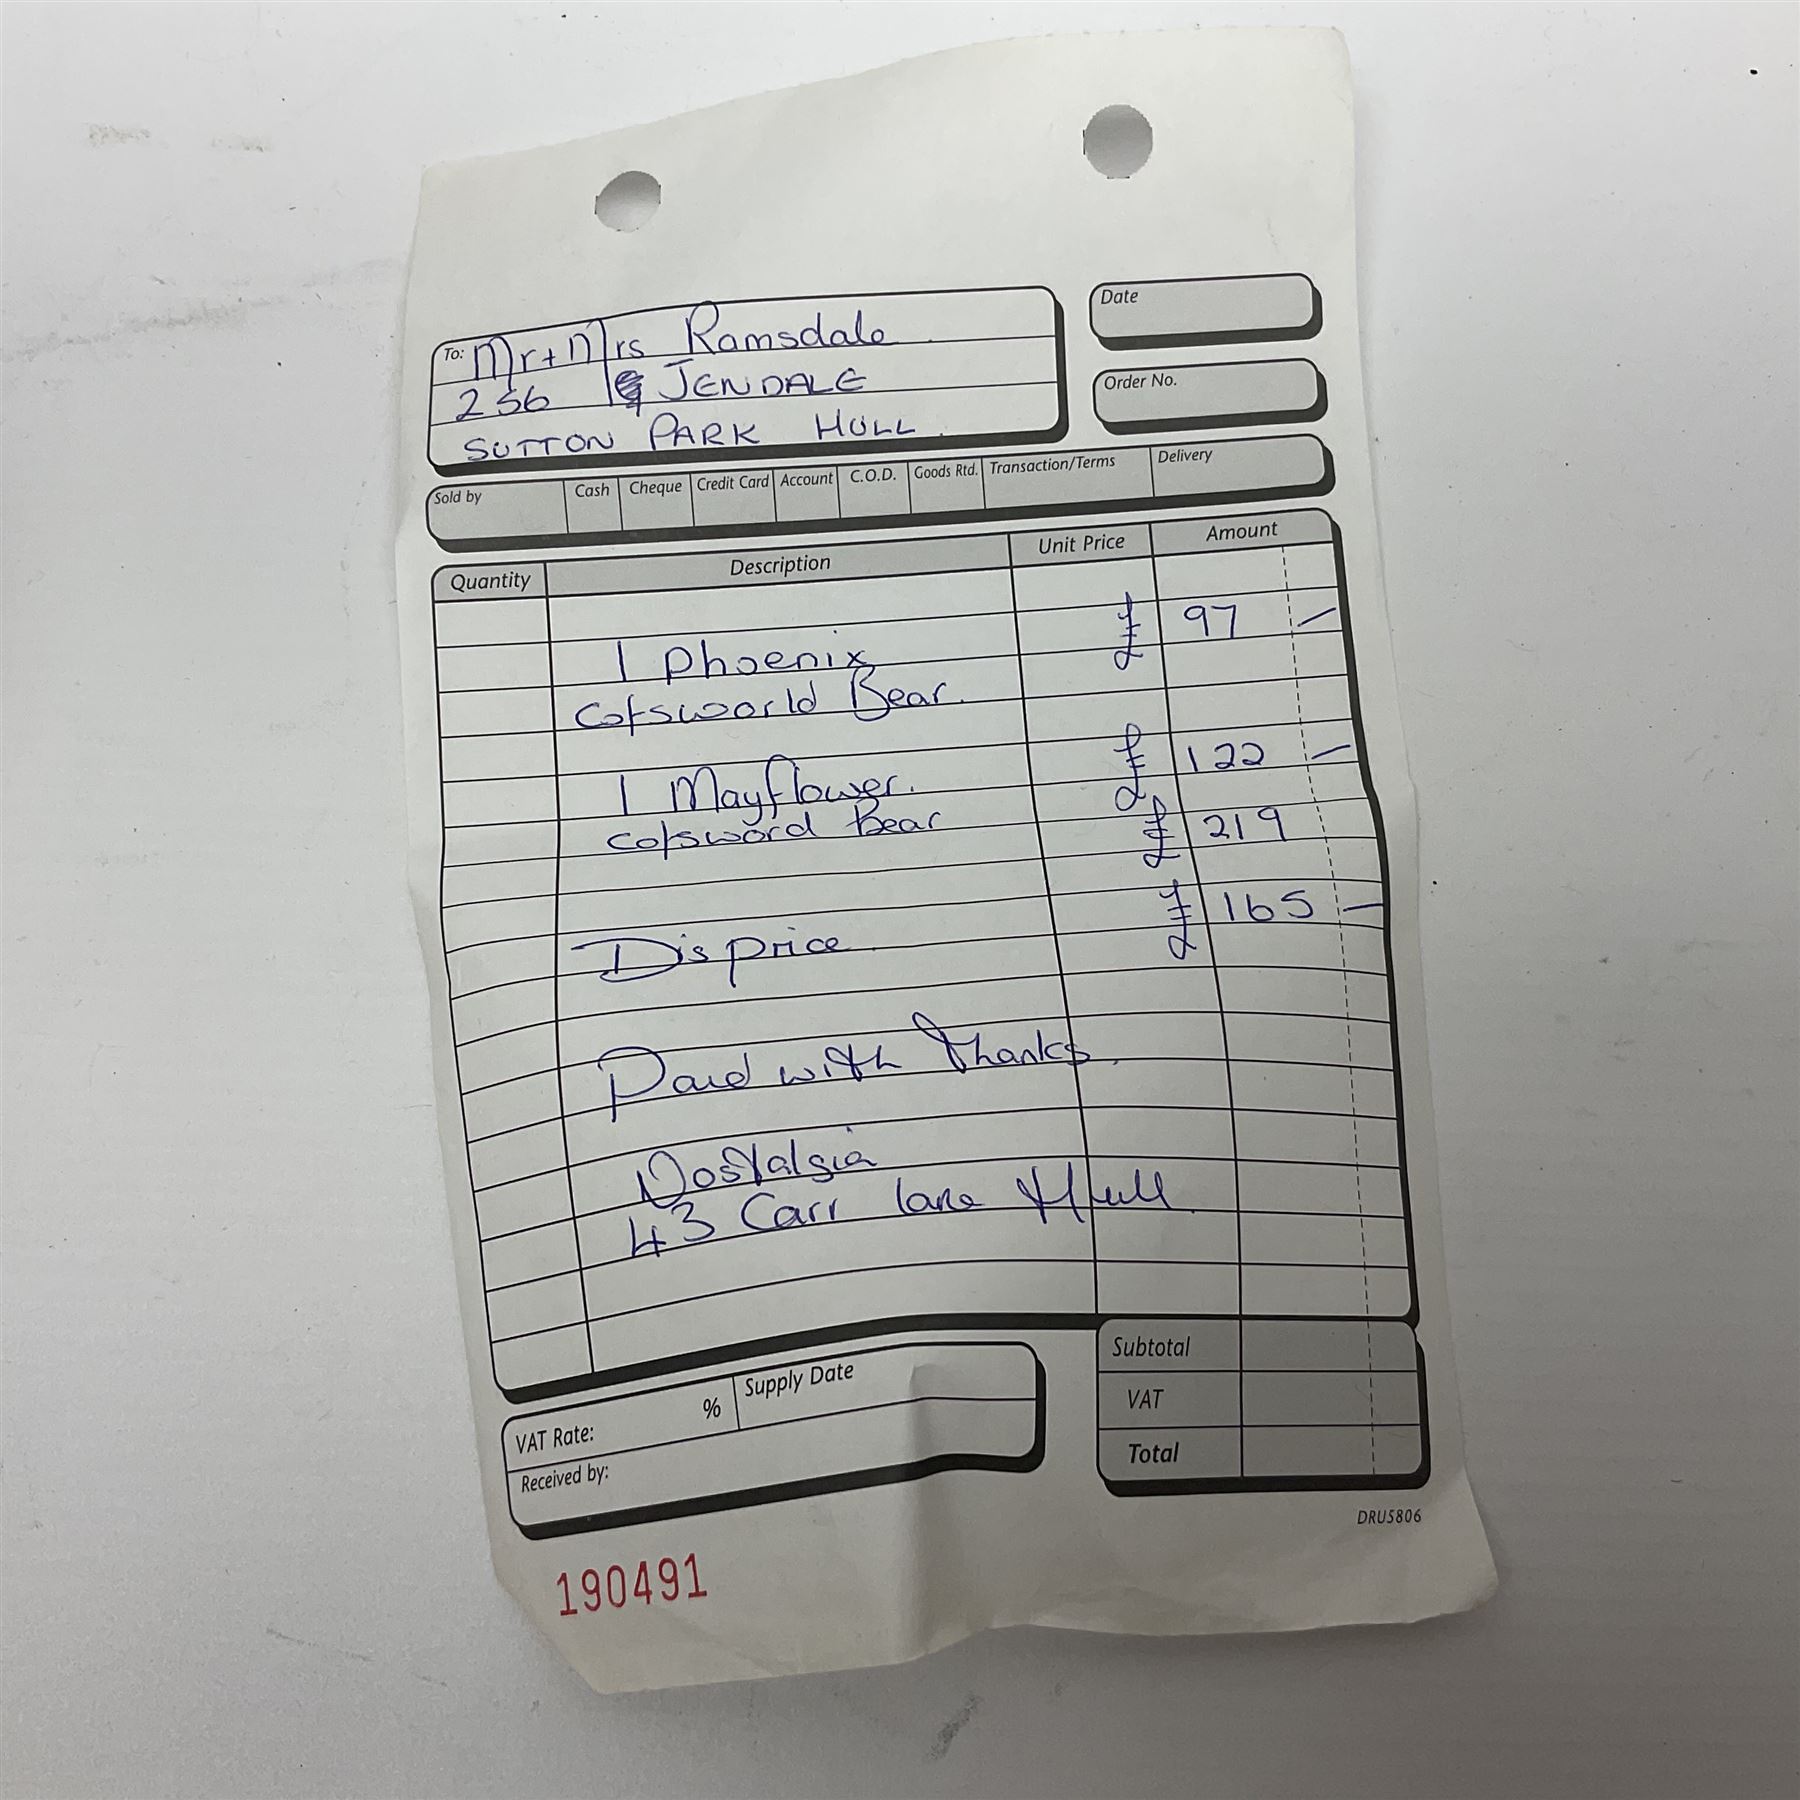 Date
To: Mr + Mrs Ramsdale
256 JENDALE
SUTTON PARK HULL.
Order No.
Sold by Cash Cheque Credit Card Account C.O.D. Goods Rtd. Transaction/Terms Delivery
Quantity Description Unit Price Amount
1 Phoenix £ 97 —
Cotsworld Bear.
1 Mayflower. £ 122 —
Cotsword Bear £ 219
Dis price £ 165 —
Paid with thanks.
Nostalgia
43 Carr lane Hull.
Subtotal
VAT Rate: % Supply Date
VAT
Received by:
Total
DRU5806
190491